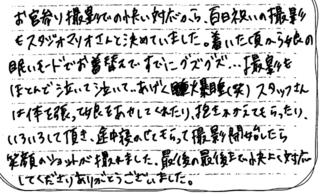 お宮参り撮影での快い対応から、百日祝いの撮影
もスタジオマリオさんと決めていました。着いた頃から娘の
眠いモードでお着替えですでにグズグズ…撮影も
ほとんど泣いて泣いて…あげく爆睡(笑)スタッフさん
は体を張って娘をあやしてくれたり、抱きかかえてもらったり、
いろいろして頂き、途中抜のせてもらって撮影開始したら
笑顔のショットが撮れました。最後の最後まで快よく対応
してくださりありがとうございました。